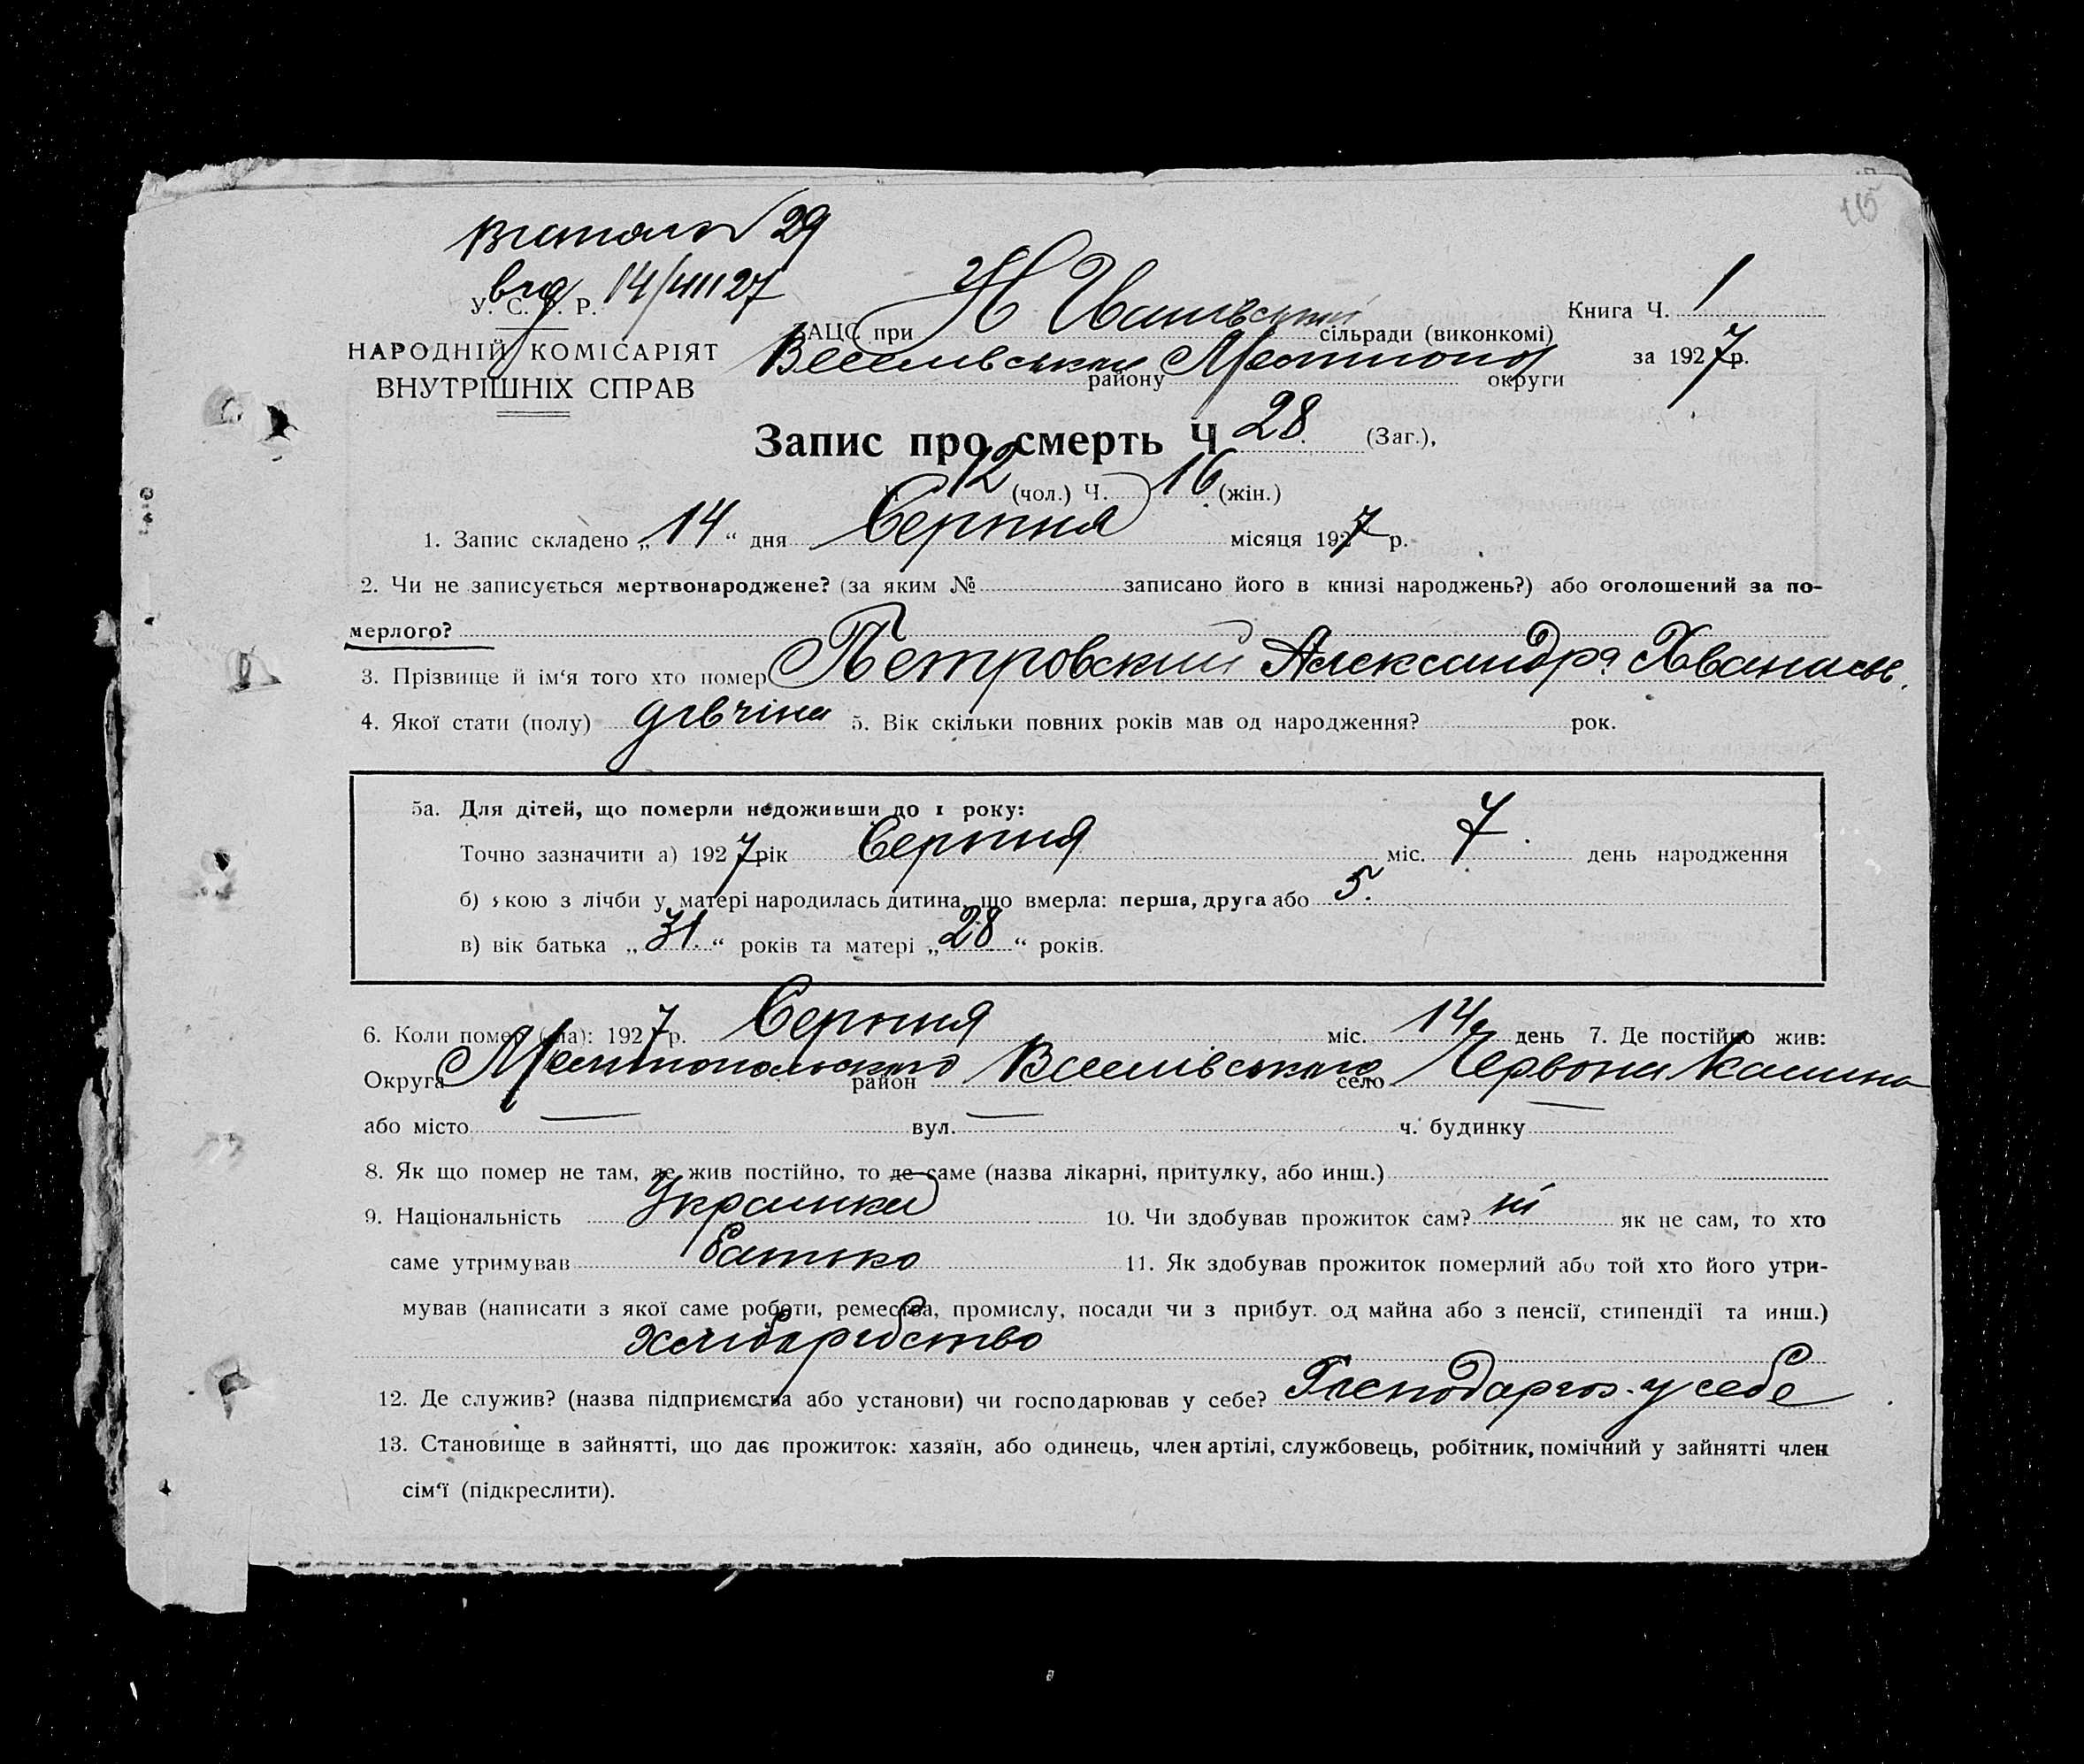 29
від 14/VIII 27
У. С. Р. Р.
НАРОДНІЙ КОМІСАРІЯТ
ВНУТРІШНІХ СПРАВ
ЗАЦС при Н Іванівській сільради (виконкомі)
Веселівський району Мелітопол округи
Книга Ч. 1
за 1927 р.
Запис про смерть Ч 28. (Заг.),
Ч 12 (чол.) Ч. 16 (жін.)
1. Запис складено „14“ дня Серпня місяця 1927 р.
2. Чи не записується мертвонароджене? (за яким № записано його в книзі народжень?) або оголошений за по-
мерлого?
3. Прізвище й ім‘я того хто помер Петровский Александра Хванасье.
4. Якої стати (полу) дівчіна 5. Вік скільки повних років мав од народження? рок.
5а. Для дітей, що померли недоживши до 1 року:
Точно зазначити а) 1927 рік Серпня міс. 7. день народження
б) якою з лічби у матері народилась дитина, що вмерла: перша, друга або 5.
в) вік батька „31.“ років та матері „28“ років.
6. Коли помер (ла): 1927 р. Серпня міс. 14 день 7. Де постійно жив:
Округа Мелітопольского район Веселівського село Червона Калина
або місто — вул. — ч. будинку —
8. Як що помер не там, де жив постійно, то де саме (назва лікарні, притулку, або инш.)
9. Національність Украинка 10. Чи здобував прожиток сам? ні як не сам, то хто
саме утримував батько 11. Як здобував прожиток померлий або той хто його утри-
мував (написати з якої саме роботи, ремества, промислу, посади чи з прибут. од майна або з пенсії, стипендії та инш.)
хліборобство
12. Де служив? (назва підприємства або установи) чи господарював у себе? Господарюв. у себе
13. Становище в зайнятті, що дає прожиток: хазяїн, або одинець, член артілі, службовець, робітник, помічний у зайнятті член
сім‘ї (підкреслити).